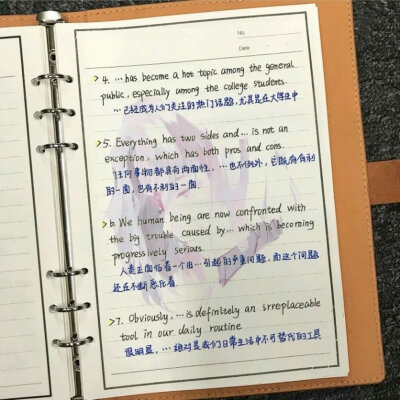 No.
Date
4. …has become a hot topic among the general
public, especially among the college students.
…已经成为人们关注的热门话题,尤其是在大学生中
5. Everything has two sides and … is not an
exception, which has both pros and cons.
任何事物都具有两面性,…也不例外,它既有有利
的一面,也有不利的一面.
6. We human being are now confronted with
the big trouble caused by… which is becoming
progressively serious.
人类正面临着一个由…引起的严重问题,而这个问题
还在不断恶化着.
7. Obviously, …is definitely an irreplaceable
tool in our daily routine
很明显,…绝对是我们日常生活中不可替代的工具